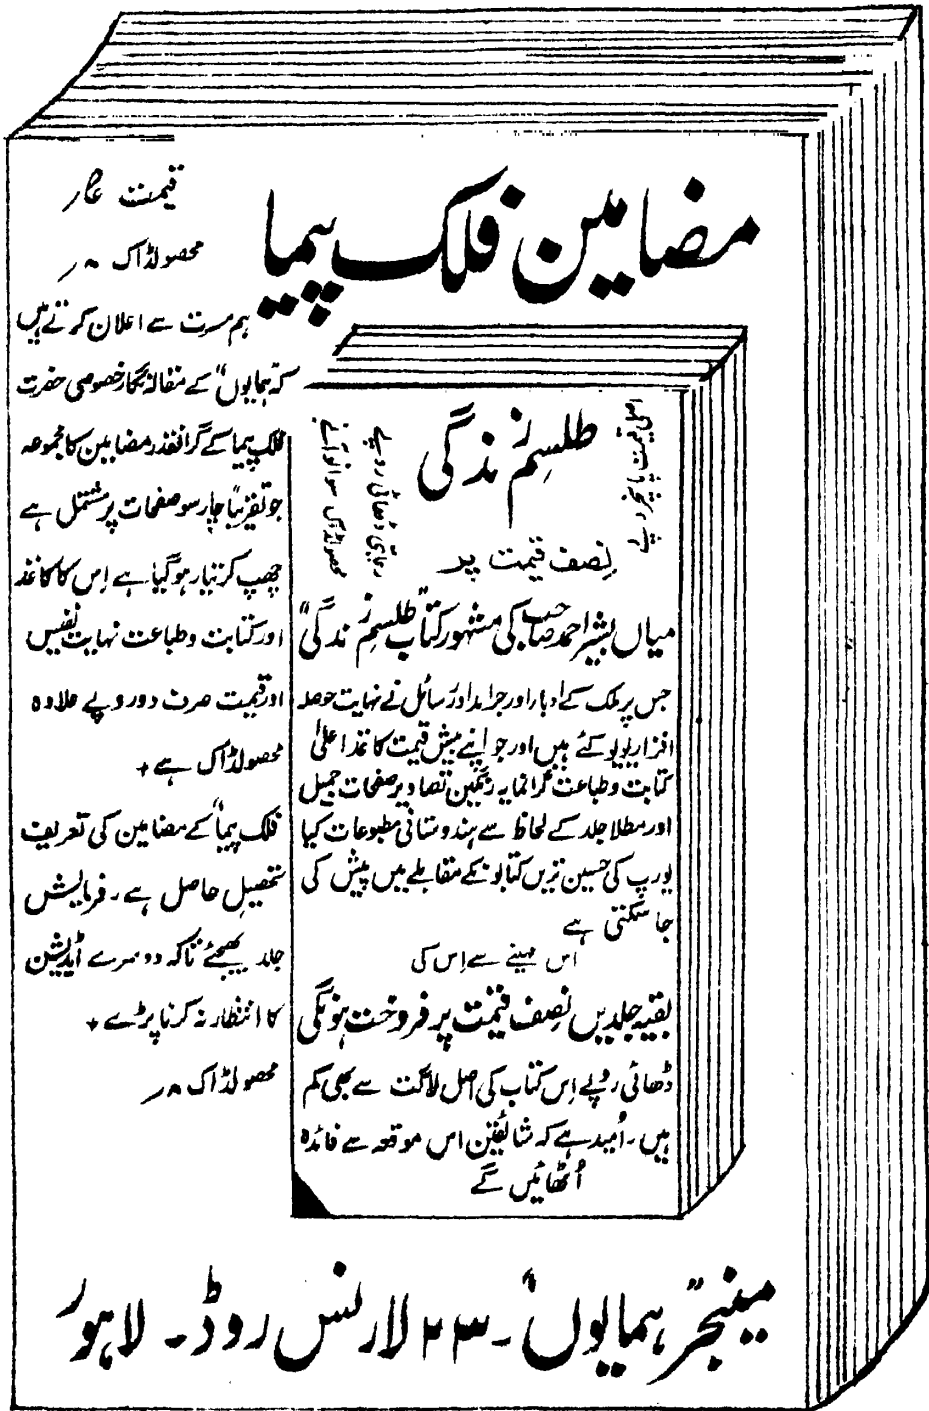 مضامین فلک پیما
قیمت عار
محصولڈاک ۸ر
ہم مسرت سے اعلان کرتے ہیں
کہ "ہمایوں" کے مقالہ نگار خصوصی حضرت
فلک پیما کے گرانقدر مضامین کا مجموعہ
جو تقریباً چار سو صفحات پر مشتمل ہے
چھپ کر تیار ہو گیا ہے اِس کا کاغذ
اور کتابت و طباعت نہایت نفیس
اور قیمت صرف دو روپے علاوہ
محصولڈاک ہے +
"فلک پیما" کے مضامین کی تعریف
تحصیلِ حاصل ہے۔ فرمائش
جلد بھیجئے تاکہ دوسرے ایڈیشن
کا انتظار نہ کرنا پڑے +
محصولڈاک ۸ر
طلسمِ زندگی
رعایتی ڈھائی روپے
محصولڈاک سوا نو آنے
نِصف قیمت پر
میاں بشیر احمد صاحب کی مشہور کتاب "طلسمِ زندگی"
جس پر ملک کے ادبا اور جراید اور رسائل نے نہایت حوصلہ
افزا ریویو کئے ہیں اور جو اپنے بیش قیمت کاغذ اعلیٰ
کتابت و طباعت گرانمایہ رنگین تصاویر صفحات جمیل
اور مطلا جلد کے لحاظ سے ہندوستانی مطبوعات کیا
یورپ کی حسین ترین کتابوں کے مقابلے میں پیش کی
جا سکتی ہے
اس مہینے سے اِس کی
بقیہ جلدیں نِصف قیمت پر فروخت ہونگی
ڈھائی روپے اِس کتاب کی اصل لاگت سے بھی کم
ہیں۔ اُمید ہے کہ شائقین اس موقعہ سے فائدہ
اُٹھائیں گے
مینجر "ہمایوں"۔ ۲۳ لارنس روڈ۔ لاہور